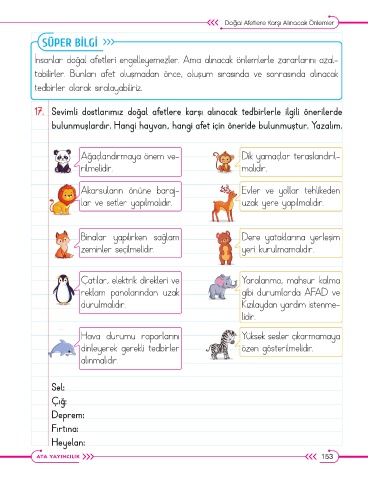 Doğal Afetlere Karşı Alınacak Önlemler
SÜPER BİLGİ
İnsanlar doğal afetleri engelleyemezler. Ama alınacak önlemlerle zararlarını azal-
tabilirler. Bunları afet oluşmadan önce, oluşum sırasında ve sonrasında alınacak
tedbirler olarak sıralayabiliriz.
17. Sevimli dostlarımız doğal afetlere karşı alınacak tedbirlerle ilgili önerilerde
bulunmuşlardır. Hangi hayvan, hangi afet için öneride bulunmuştur. Yazalım.
Ağaçlandırmaya önem ve-
rilmelidir.
Dik yamaçlar teraslandırıl-
malıdır.
Akarsuların önüne baraj-
lar ve setler yapılmalıdır.
Evler ve yollar tehlikeden
uzak yere yapılmalıdır.
Binalar yapılırken sağlam
zeminler seçilmelidir.
Dere yataklarına yerleşim
yeri kurulmamalıdır.
Çatılar, elektrik direkleri ve
reklam panolarından uzak
durulmalıdır.
Yaralanma, mahsur kalma
gibi durumlarda AFAD ve
Kızılaydan yardım istenme-
lidir.
Hava durumu raporlarını
dinleyerek gerekli tedbirler
alınmalıdır.
Yüksek sesler çıkarmamaya
özen gösterilmelidir.
Sel:
Çığ:
Deprem:
Fırtına:
Heyelan:
ATA YAYINCILIK
153